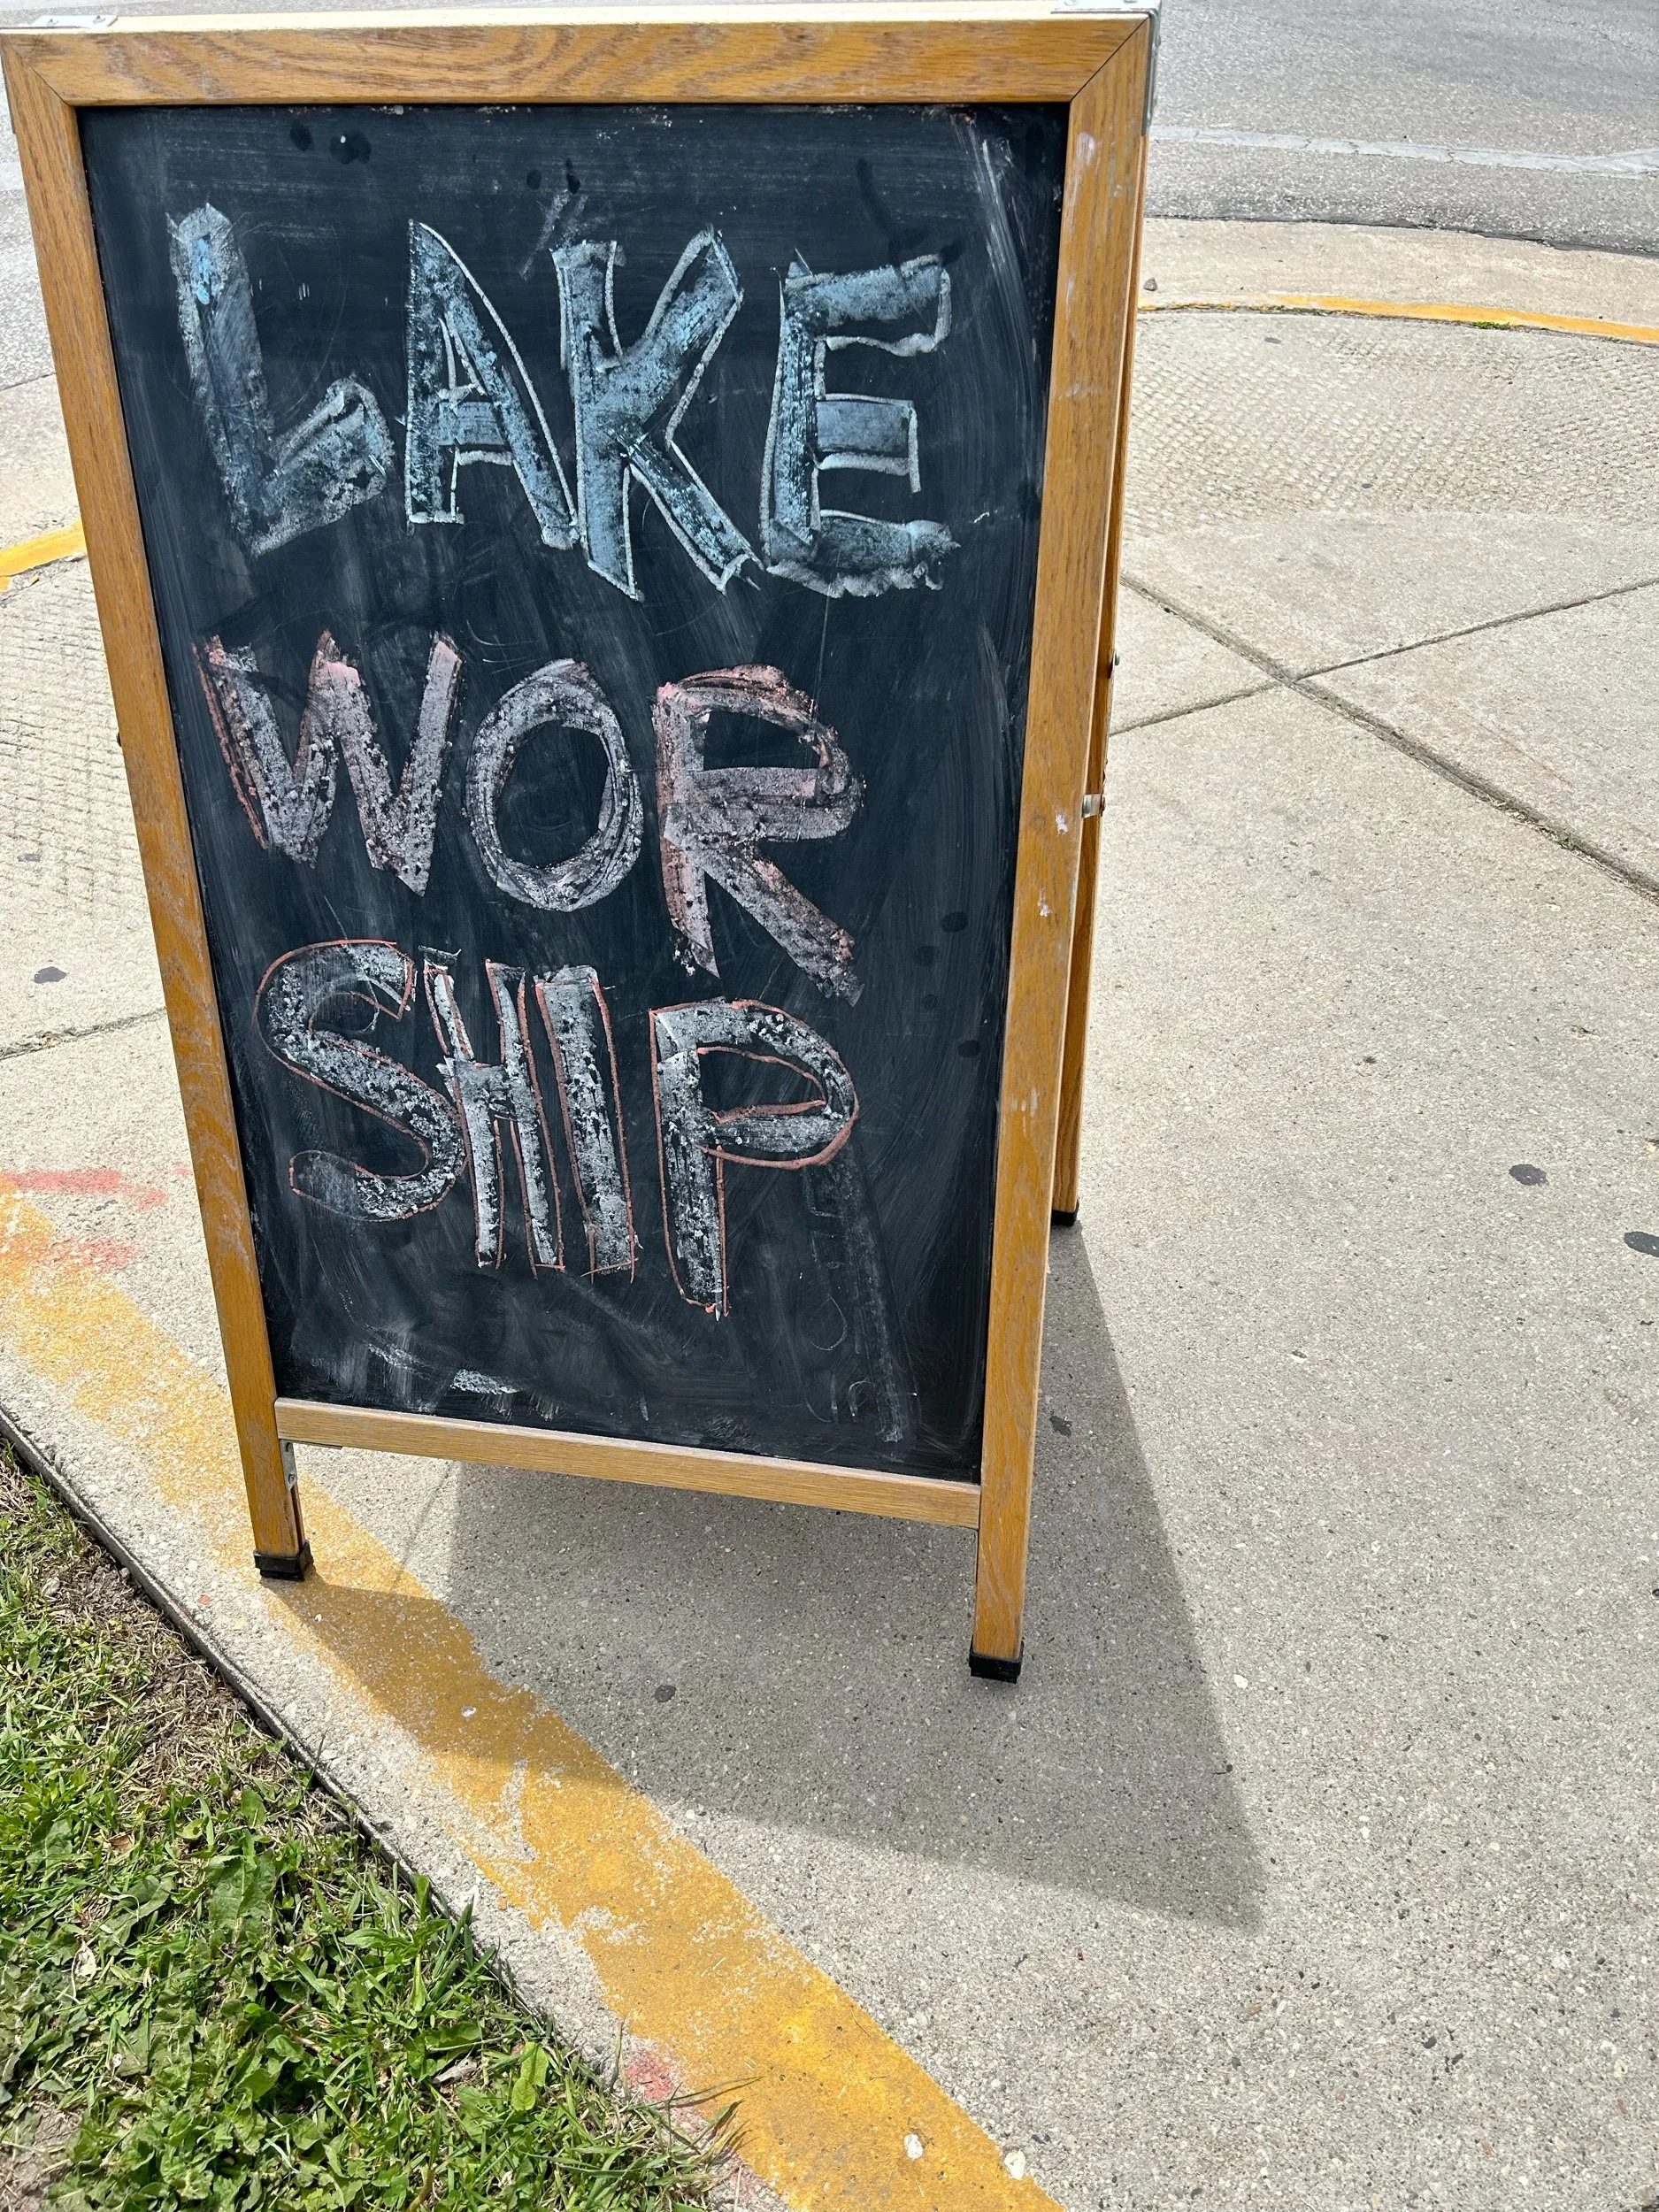 LAKE
WOR
SHIP